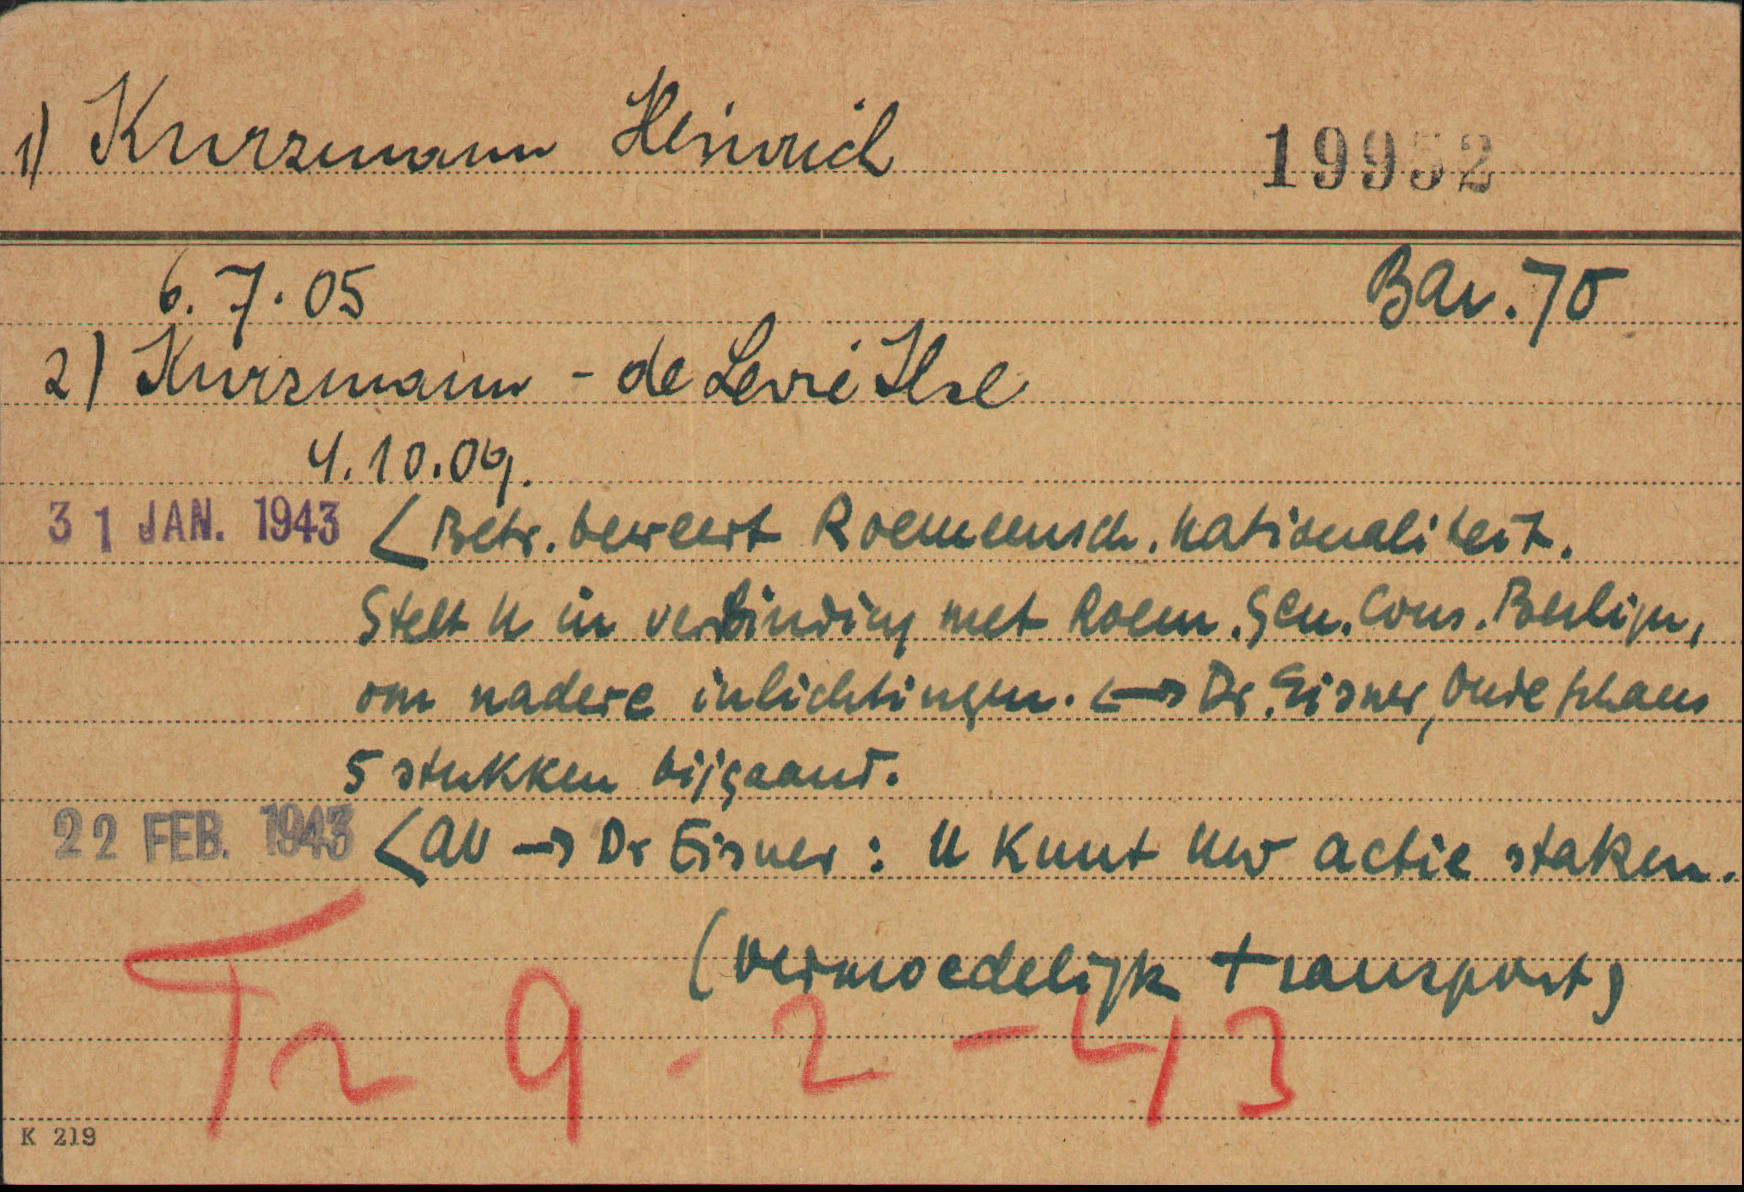 1) Kurzmann Heinrich 19952
6.7.05 Bar. 70
2) Kurzmann - de Levie Ilse
4.10.09.
31 JAN. 1943 < Betr. beweert Roemeensch. nationaliteit.
Stelt U in verbinding met Roem. Gen. Cons. Berlijn,
om nadere inlichtingen. <—> Dr. Eisner, Oude Schans
5 stukken bijgaand.
22 FEB. 1943 < AV → Dr Eisner : U kunt Uw actie staken.
(vermoedelijk transport)
Tr 9 - 2 - 43
K 219